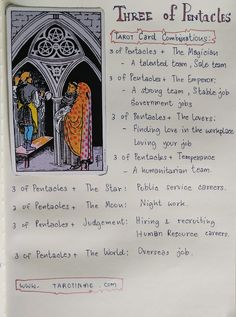 THREE OF PENTACLES
TAROT Card Combinations:
3 of Pentacles + The Magician
- A talented team, Sole team
3 of Pentacles + The Emperor:
- A strong team, Stable job
Government jobs
3 of Pentacles + The Lovers:
- Finding love in the workplace
Loving your job
3 of Pentacles + Temperance
- A humanitarian team.
3 of Pentacles + The Star: Public service careers.
3 of Pentacles + The Moon: Night work.
3 of Pentacles + Judgement: Hiring & recruiting
Human Resource careers.
3 of Pentacles + The World: Overseas job.